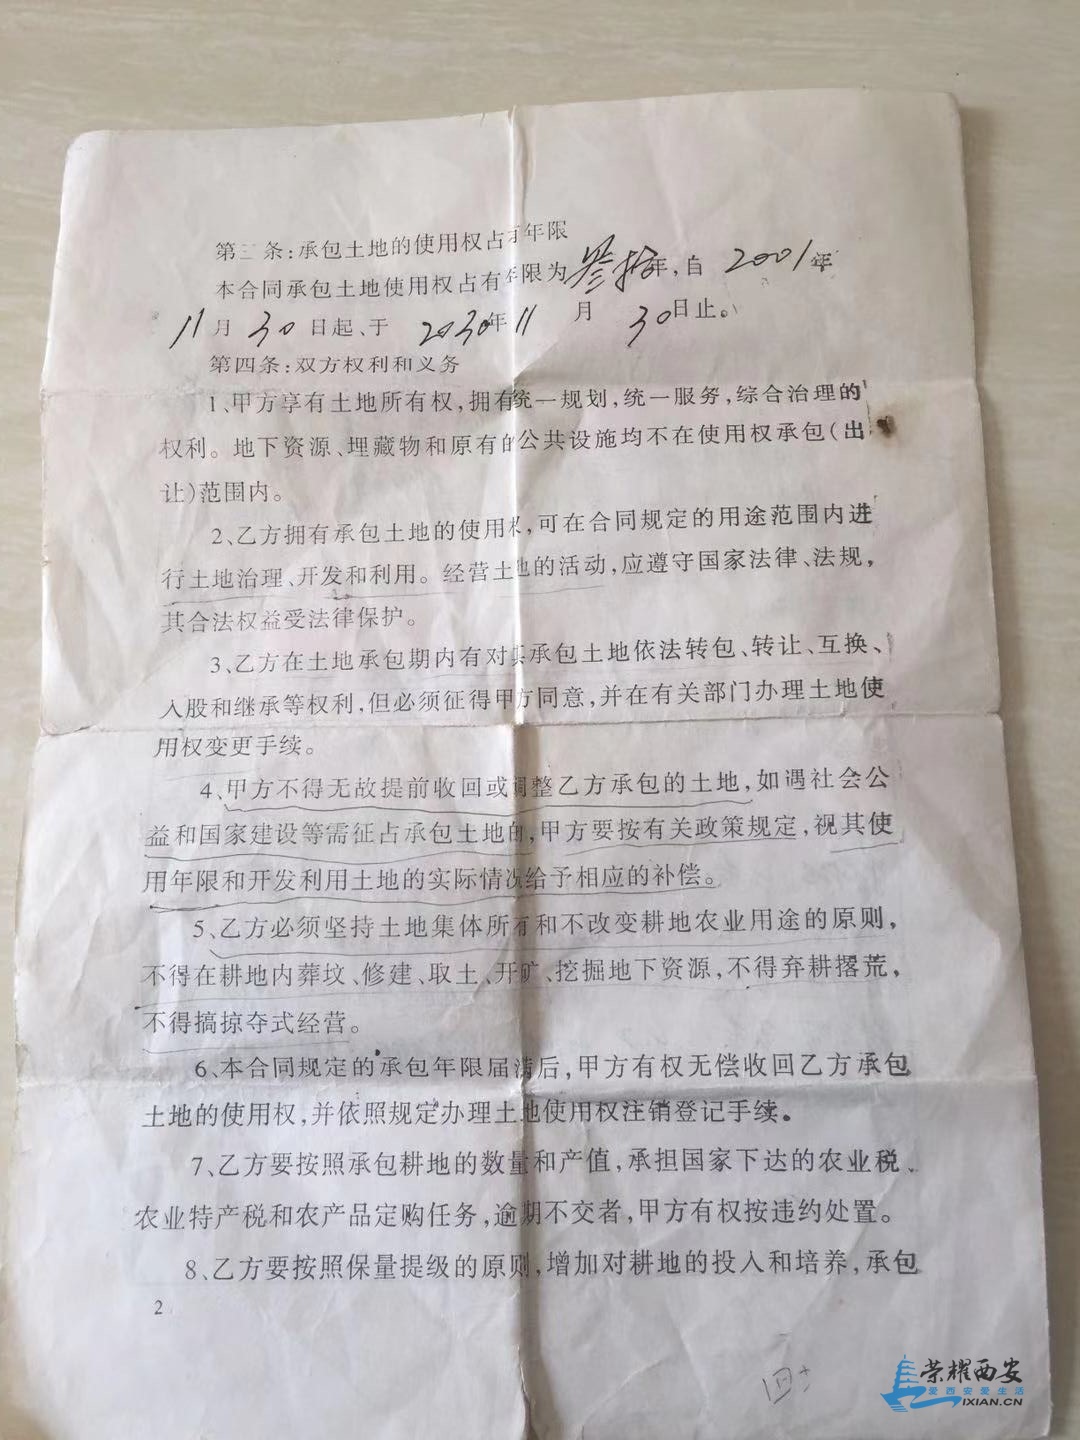 第三条:承包土地的使用权占有年限
本合同承包土地使用权占有年限为叁拾年,自2001年
11月30日起、于2030年11月30日止。
第四条:双方权利和义务
1、甲方享有土地所有权,拥有统一规划,统一服务,综合治理的
权利。地下资源、埋藏物和原有的公共设施均不在使用权承包(出
让)范围内。
2、乙方拥有承包土地的使用权,可在合同规定的用途范围内进
行土地治理、开发和利用。经营土地的活动,应遵守国家法律、法规,
其合法权益受法律保护。
3、乙方在土地承包期内有对其承包土地依法转包、转让、互换、
入股和继承等权利,但必须征得甲方同意,并在有关部门办理土地使
用权变更手续。
4、甲方不得无故提前收回或调整乙方承包的土地,如遇社会公
益和国家建设等需征占承包土地的,甲方要按有关政策规定,视其使
用年限和开发利用土地的实际情况给予相应的补偿。
5、乙方必须坚持土地集体所有和不改变耕地农业用途的原则,
不得在耕地内葬坟、修建、取土、开矿、挖掘地下资源,不得弃耕撂荒,
不得搞掠夺式经营。
6、本合同规定的承包年限届满后,甲方有权无偿收回乙方承包
土地的使用权,并依照规定办理土地使用权注销登记手续。
7、乙方要按照承包耕地的数量和产值,承担国家下达的农业税、
农业特产税和农产品定购任务,逾期不交者,甲方有权按违约处置。
8、乙方要按照保量提级的原则,增加对耕地的投入和培养,承包
2
荣耀西安
爱西安爱生活
IXIAN.CN